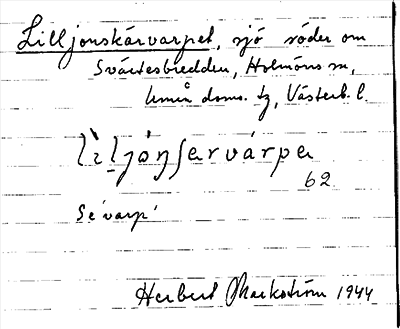 Lilljonskärvarpet, sjö söder om
Svärtesbredden, Holmöns sn,
Umeå doms. tg, Västerb. l.
lìljónʃærvárpe
62
Se varp!
Herbert Markström 1944